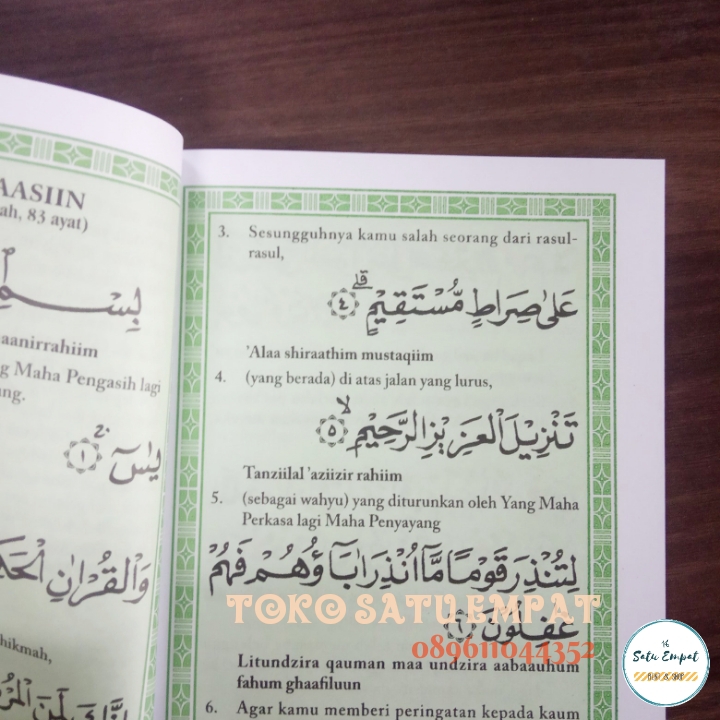 AASIIN
ah, 83 ayat)
بِسْمِ
aanirrahiim
g Maha Pengasih lagi
ng.
يٰسۤ ۚ ١
وَالْقُرْاٰنِ الْحَكِ
hikmah,
اِنَّكَ لَمِنَ الْمُرْ
3. Sesungguhnya kamu salah seorang dari rasul-
rasul,
عَلٰى صِرَاطٍ مُّسْتَقِيْمٍۗ ٤
'Alaa shiraathim mustaqiim
4. (yang berada) di atas jalan yang lurus,
تَنْزِيْلَ الْعَزِيْزِ الرَّحِيْمِۙ ٥
Tanziilal 'aziizir rahiim
5. (sebagai wahyu) yang diturunkan oleh Yang Maha
Perkasa lagi Maha Penyayang
لِتُنْذِرَ قَوْمًا مَّآ اُنْذِرَ اٰبَاۤؤُهُمْ فَهُمْ
غٰفِلُوْنَ ٦
TOKO SATU EMPAT
089611044352
Litundzira qauman maa undzira aabaauhum
fahum ghaafiluun
6. Agar kamu memberi peringatan kepada kaum
Satu Empat